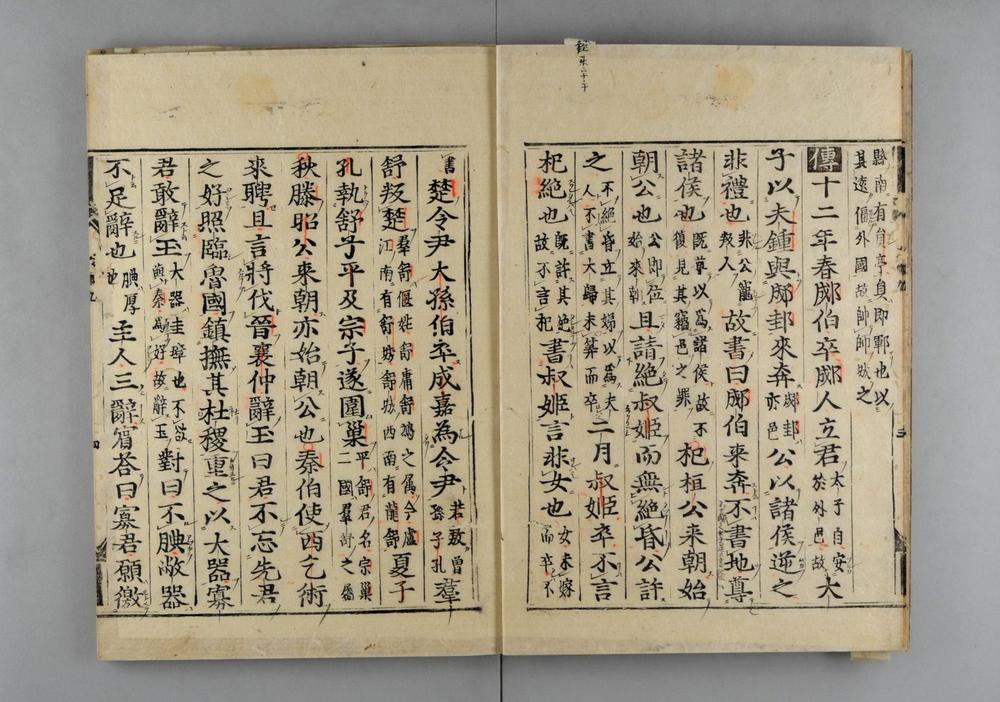 縣南有員亭員即鄆也以
其遠偪外國故帥師城之
傳十二年春郕伯卒郕人立君太子自安於外邑故大
子以夫鍾與郕邽來奔郕邽亦邑公以諸侯逆之
非禮也非公寵叛人故書曰郕伯來奔不書地尊
諸侯也既尊以爲諸侯故不復見其竊邑之罪杞桓公來朝始
朝公也公即位始來朝且請絕叔姬而無絕昏公許
之不絕昏立其娣以爲夫人不書大歸未筭而卒二月叔姬卒不言
杞絕也既許其絕故不言杞書叔姬言非女也女未嫁而卒不
書楚令尹大孫伯卒成嘉為令尹若敖曾孫子孔羣
舒叛楚羣舒偃姓舒庸舒鳩之属今廬江南有舒城舒城西南有龍舒夏子
孔執舒子平及宗子遂圍巢平舒君名宗巢二國羣舒之屬
秋滕昭公來朝亦始朝公也秦伯使西乞術
來聘且言將伐晉襄仲辭玉曰君不忘先君
之好照臨魯國鎮撫其社稷重之以大器寡
君敢辭玉大器圭璋也不欲與秦爲好故辭玉對曰不腆敝器
不足辭也腆厚也主人三辭賔荅曰寡君願徼